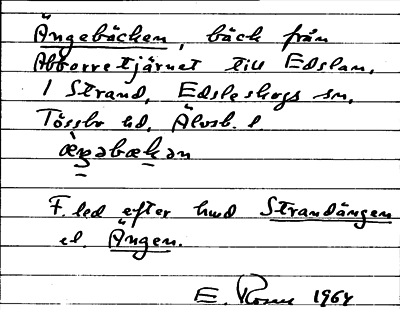 Ängebäcken, bäck från
Abborretjärnet till Edslan,
i Strand, Edsleskogs sn,
Tössbo hd, Älvsb. l.
æ̀ŋəbæḵən
F. led efter hmd Strandängen
el. Ängen.
E. 1964